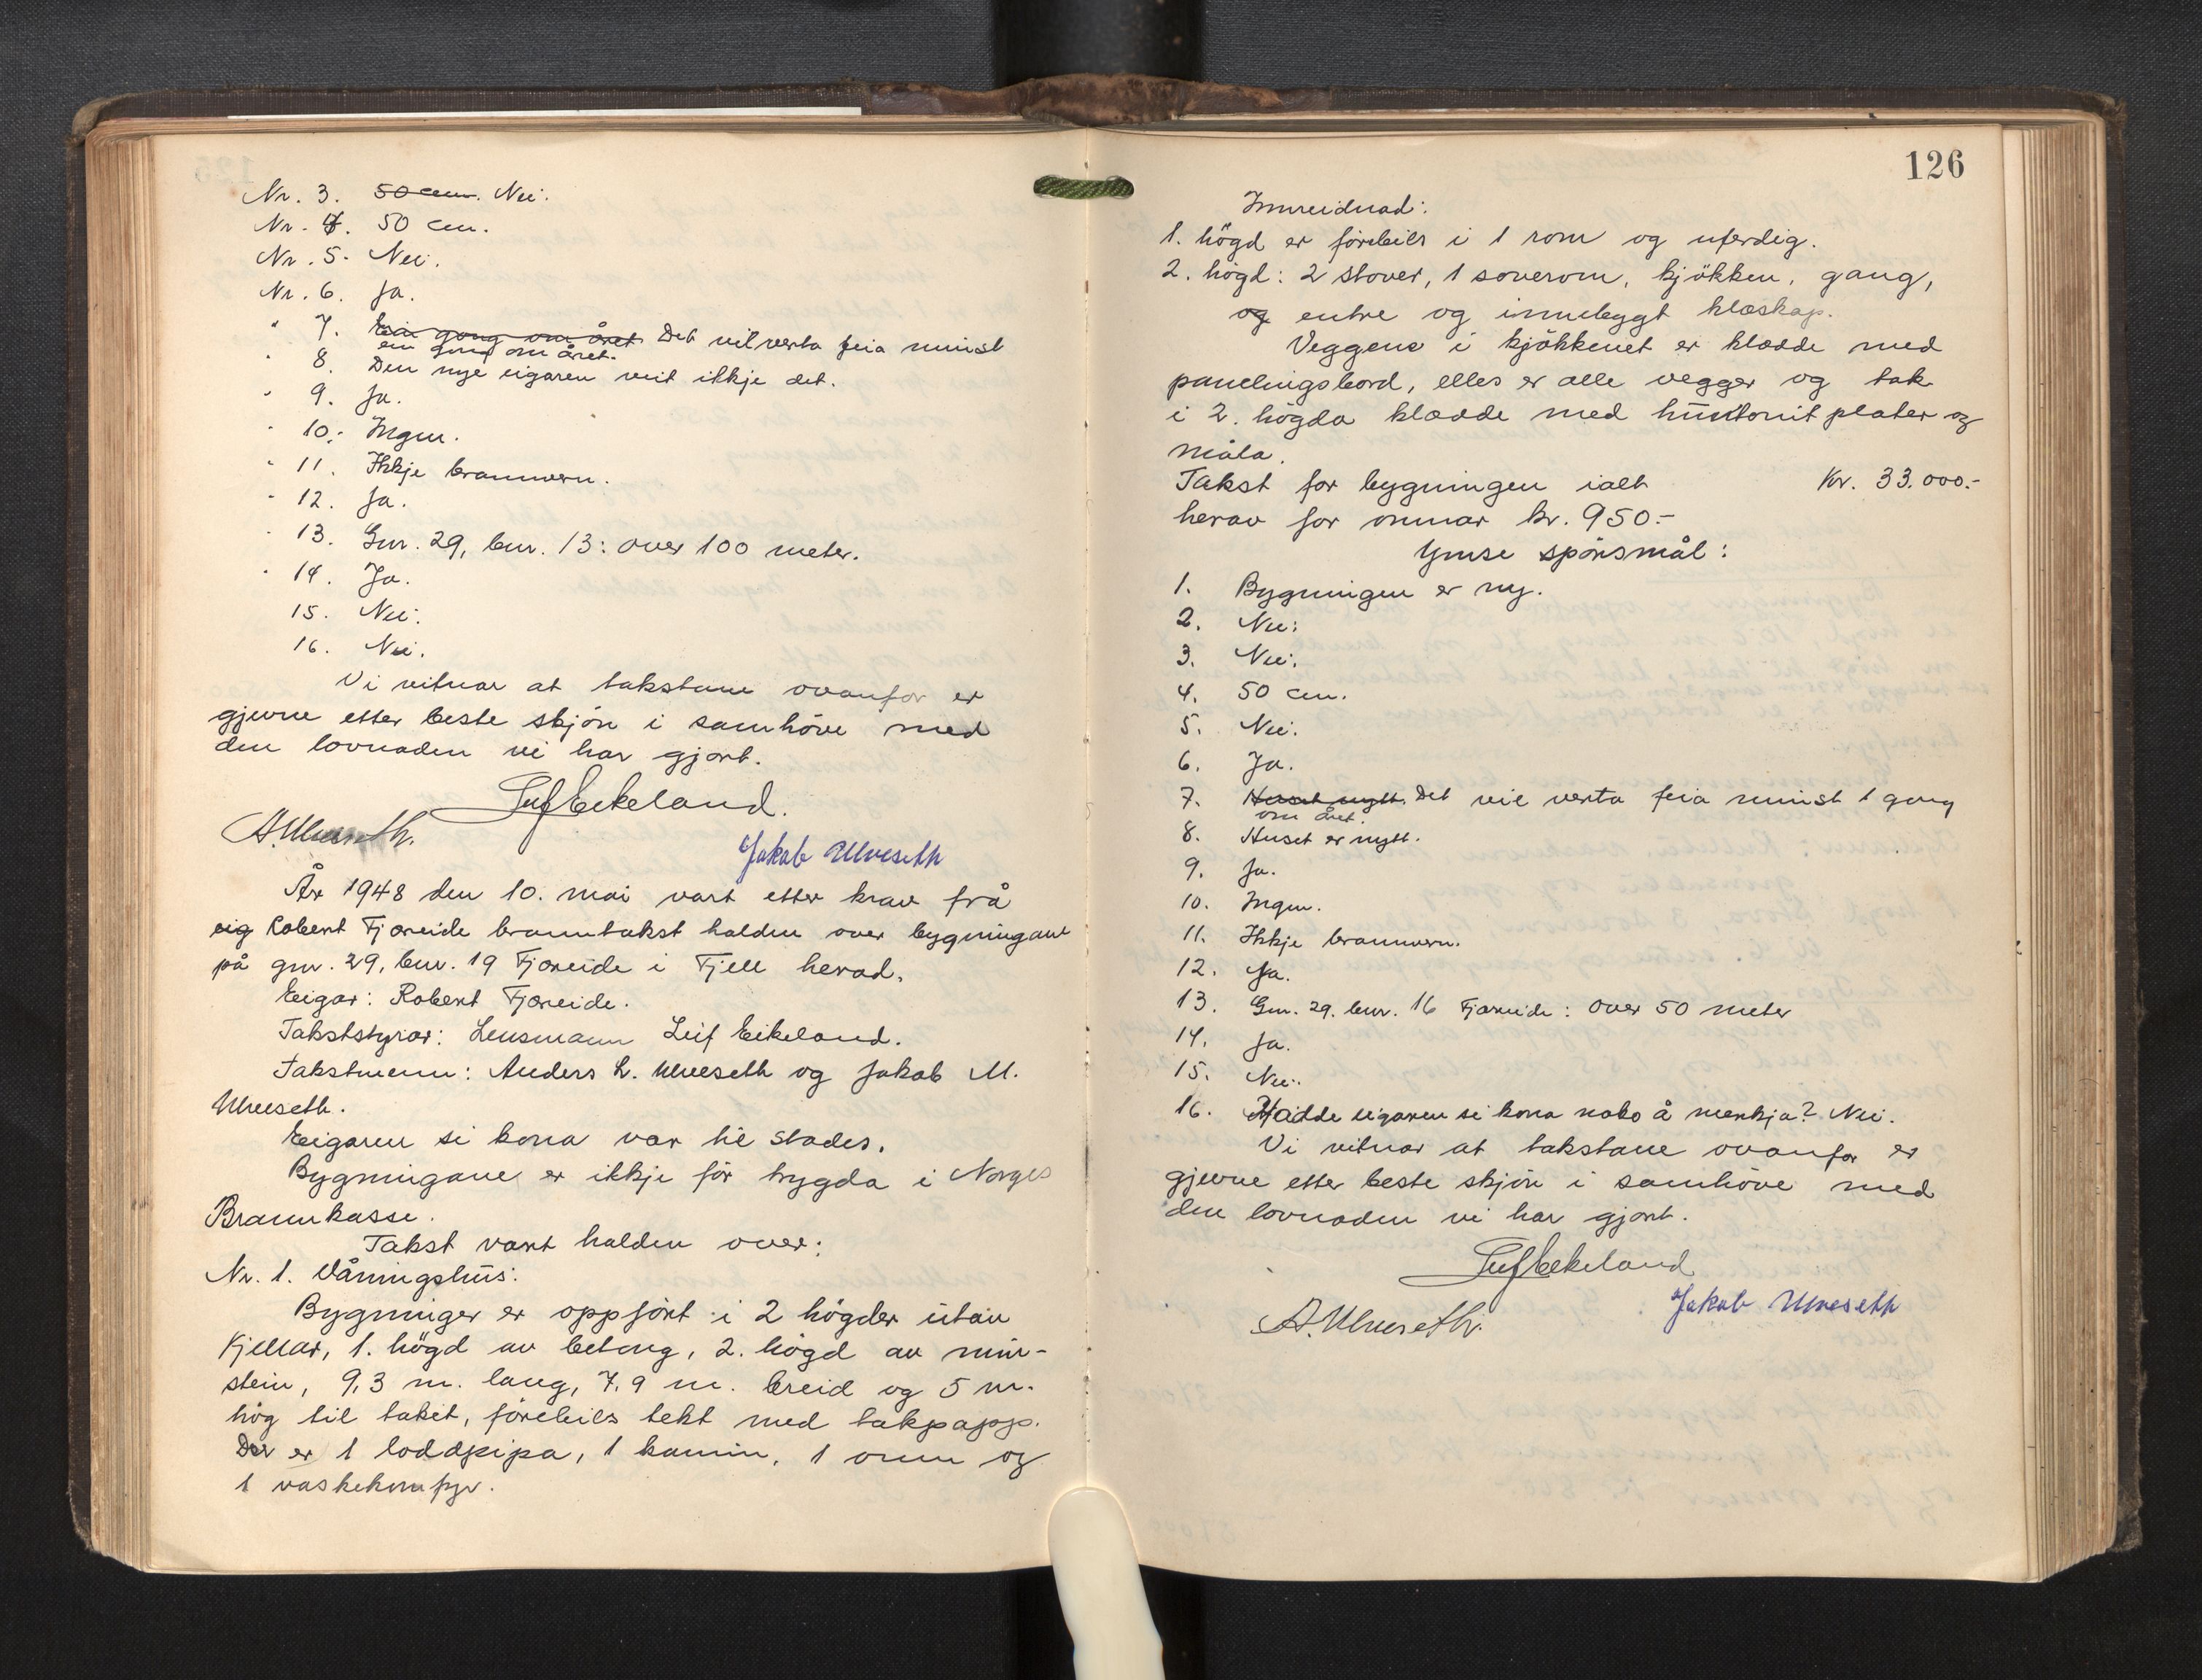 Nr. 3. 50 cm. Nei.
Nr. 4. 50 cm.
Nr. 5. Nei.
Nr. 6. Ja.
" 7. Ein gong om året. Det vil verta feia minst
ein gong om året.
" 8. Den nye eigaren veit ikkje det.
" 9. Ja.
" 10. Ingen.
" 11. Ikkje brannvern.
" 12. Ja.
" 13. Gnr. 29, bnr. 13: over 100 meter.
" 14. Ja.
15. Nei.
16. Nei.
Vi vitnar at takstane ovanfor er
gjevne etter beste skjön i samhöve med
den lovnaden vi har gjort.
Leif Eikeland.
A. Ulveseth.
Jakob Ulveseth
År 1948 den 10. mai vart etter krav frå
eig Robert Fjæreide branntakst halden over bygningane
på gnr. 29, bnr. 19 Fjæreide i Fjell herad.
Eigar: Robert Fjæreide.
Takststyrar: Lensmann Leif Eikeland.
Takstmenn: Anders L. Ulveseth og Jakob M.
Ulveseth.
Eigaren si kona var til stades.
Bygningane er ikkje för trygda i Norges
Brannkasse.
Takst vart halden over:
Nr. 1. Våningshus:
Bygninger er oppfört i 2 högder utan
kjellar, 1. högd av betong, 2. högd av mur-
stein, 9,3 m. lang, 7,9 m. breid og 5 m.
hög til taket, förebils tekt med takpapp.
Der er 1 loddpipa, 1 kamin, 1 omn og
1 vaskekomfyr.
126
Innreidnad:
1. högd er förebils i 1 rom og uferdig.
2. högd: 2 stover, 1 soverom, kjökken, gang,
og entre og innebygt klæskap.
Veggene i kjökkenet er klædde med
panelingsbord, elles er alle vegger og tak
i 2. högda klædde med huntonit plater og
måla.
Takst for bygningen ialt Kr. 33.000.-
herav for omnar kr. 950.-
Ymse spörsmål:
1. Bygningen er ny.
2. Nei.
3. Nei.
4. 50 cm.
5. Nei.
6. Ja.
7. Huset nytt. Det vil verta feia minst 1 gong
om året.
8. Huset er nytt.
9. Ja.
10. Ingen.
11. Ikkje brannvern.
12. Ja.
13. Gnr. 29. bnr. 16 Fjæreide: over 50 meter
14. Ja.
15. Nei.
16. Hadde eigaren si kona noko å merkja? Nei.
Vi vitnar at takstane ovanfor er
gjevne etter beste skjön i samhöve med
den lovnaden vi har gjort.
Leif Eikeland
Jakob Ulveseth
A. Ulveseth.